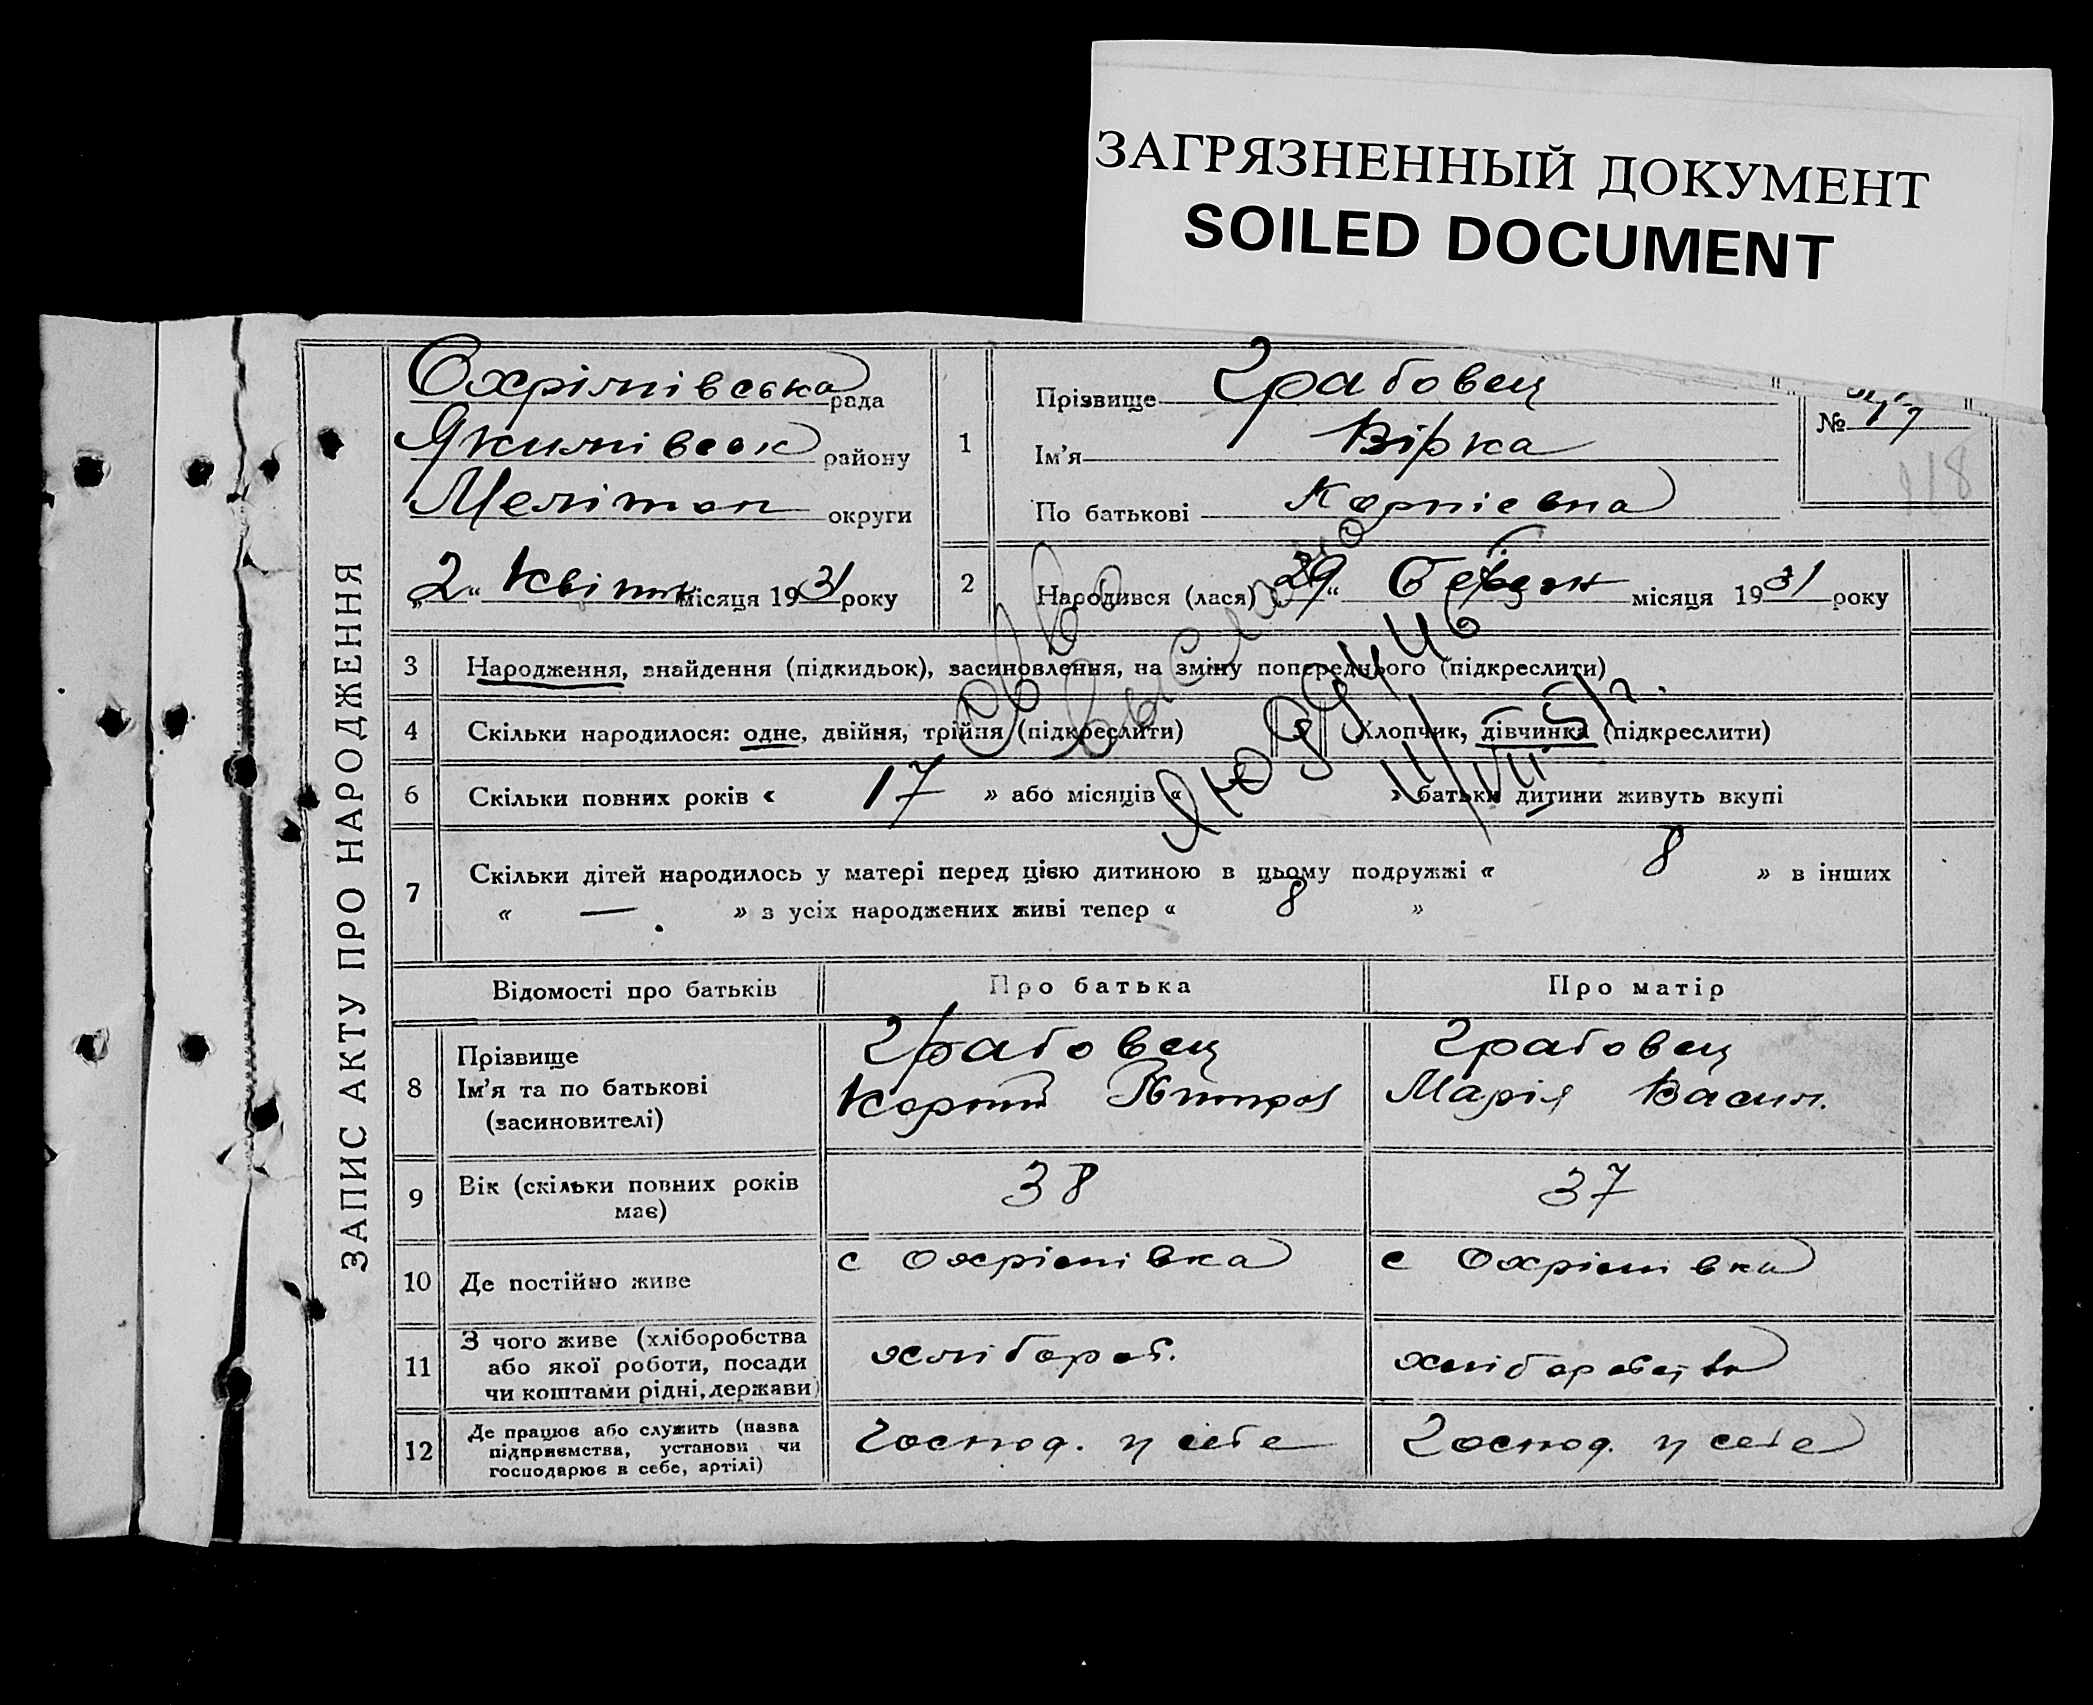 ЗАГРЯЗНЕННЫЙ ДОКУМЕНТ
SOILED DOCUMENT
ЗАПИС АКТУ ПРО НАРОДЖЕННЯ
Охрімівська рада
Якимівськ району
Мелітоп округи
„2“ Квітня місяця 1931 року
1
Прізвище Грабовец
Ім'я Вірка
По батькові Корніевна
№ 17
118
2 Народився (лася) 29“ Березн місяця 1931 року
3 Народження, знайдення (підкидьок), засиновлення, на зміну попереднього (підкреслити)
4 Скільки народилося: одне, двійня, трійня (підкреслити) Хлопчик, дівчинка (підкреслити)
6 Скільки повних років « 17 » або місяців « » батьки дитини живуть вкупі
7 Скільки дітей народилось у матері перед цією дитиною в цьому подружжі « 8 » в інших
« — » з усіх народжених живі тепер « 8 »
Св во
выслано
11/VII
Відомості про батьків Про батька Про матір
8 Прізвище
Ім'я та по батькові
(засиновителі)
Грабовец
Корній Питров
Грабовец
Марія Васил.
9 Вік (скільки повних років
має)
38 37
10 Де постійно живе с Охрімівка с Охрімівка
11 З чого живе (хліборобства
або якої роботи, посади
чи коштами рідні, держави)
хлібороб. хліборобство
12 Де працює або служить (назва
підприємства, установи чи
господарює в себе, артілі)
Господ. у себе Господ. у себе